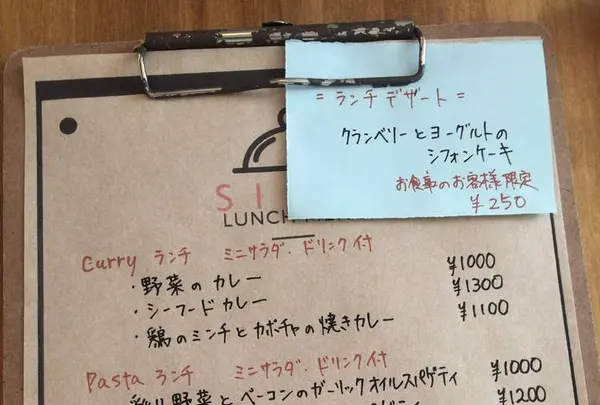 = ランチ デザート =
クランベリーとヨーグルトの
シフォンケーキ
お食事のお客様限定
¥250
LUNCH
Curry ランチ ミニサラダ・ドリンク付
・野菜のカレー ¥1000
・シーフードカレー ¥1300
・鶏のミンチとカボチャの焼きカレー ¥1100
Pasta ランチ ミニサラダ・ドリンク付
野菜とベーコンのガーリックオイルスパゲティ ¥1000
¥1200